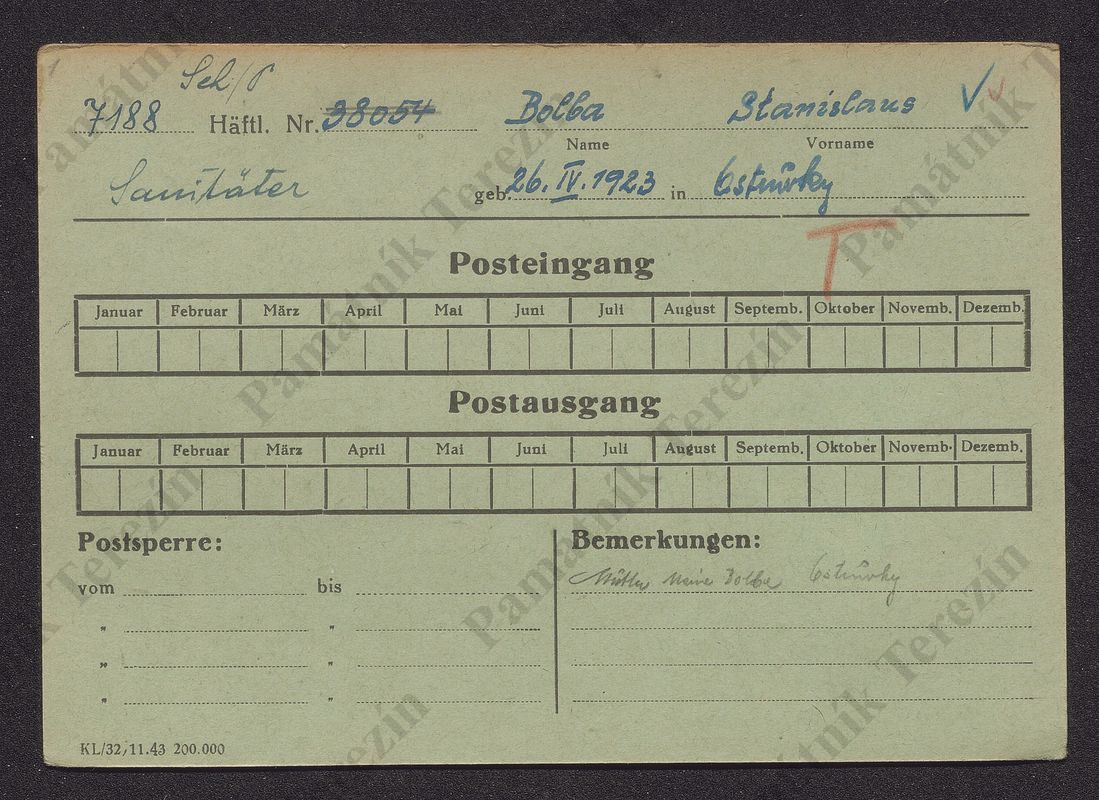 Sch/P
7188 Häftl. Nr. 38054 Bolba Stanislaus
Name Vorname
Sanitäter geb. 26. IV. 1923 in Ostrůvky
T
Posteingang
Januar Februar März April Mai Juni Juli August Septemb. Oktober Novemb. Dezemb.
Postausgang
Januar Februar März April Mai Juni Juli August Septemb. Oktober Novemb. Dezemb.
Postsperre: Bemerkungen:
vom bis Bolba Ostrůvky
" "
" "
" "
KL/32/11.43 200.000
Památník Terezín